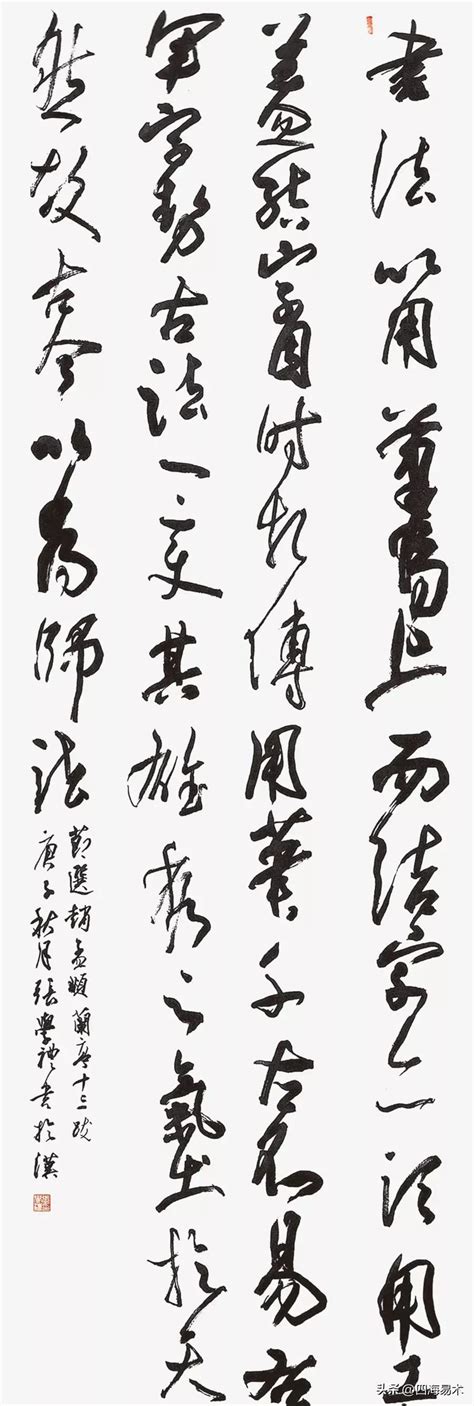 書法以用筆為上而結字亦須用工
蓋結字因時相傳用筆千古不易右
軍字勢古法一變其雄秀之氣出於天
然故古今以為師法
節選趙孟頫蘭亭十三跋
庚子秋月張學禮書於漢
头条 @四海易木